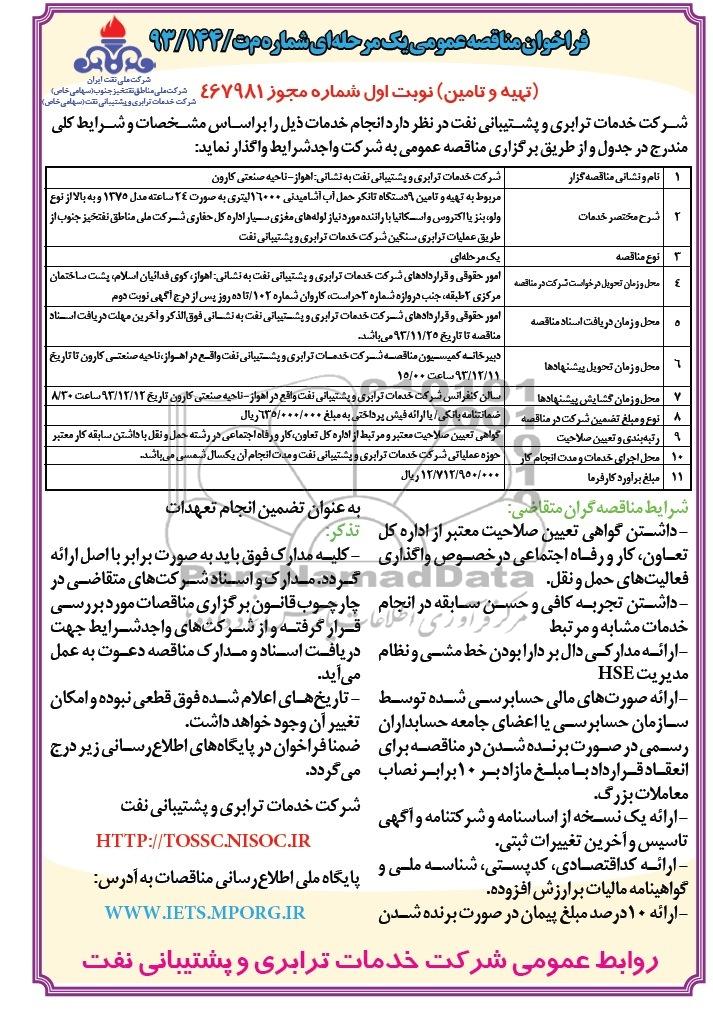 فراخوان مناقصه عمومی یک مرحله‌ای شماره م‌ت/۹۳/۱۴۴
شرکت ملی نفت ایران
شرکت ملی مناطق نفتخیز جنوب (سهامی خاص)
شرکت خدمات ترابری و پشتیبانی نفت (سهامی خاص)
(تهیه و تامین) نوبت اول شماره مجوز ۴۶۷۹۸۱
شرکت خدمات ترابری و پشتیبانی نفت در نظر دارد انجام خدمات ذیل را بر اساس مشخصات و شرایط کلی
مندرج در جدول و از طریق برگزاری مناقصه عمومی به شرکت واجد شرایط واگذار نماید:
۱ نام و نشانی مناقصه‌گزار شرکت خدمات ترابری و پشتیبانی نفت به نشانی: اهواز-ناحیه صنعتی کارون
۲ شرح مختصر خدمات مربوط به تهیه و تامین ۹دستگاه تانکر حمل آب آشامیدنی ۱۶۰۰۰لیتری به صورت ۲۴ ساعته مدل ۱۳۷۵ و به بالا از نوع
ولوو، بنز یا اکتروس و اسکانیا با راننده مورد نیاز لوله‌های مغزی سیار اداره کل حفاری شرکت ملی مناطق نفتخیز جنوب از
طریق عملیات ترابری سنگین شرکت خدمات ترابری و پشتیبانی نفت
۳ نوع مناقصه یک مرحله‌ای
۴ محل و زمان تحویل درخواست شرکت در مناقصه امور حقوقی و قراردادهای شرکت خدمات ترابری و پشتیبانی نفت به نشانی: اهواز، کوی فدائیان اسلام، پشت ساختمان
مرکزی ۲طبقه، جنب دروازه شماره ۳حراست، کاروان شماره ۱۰۲/تا ده روز پس از درج آگهی نوبت دوم
۵ محل و زمان دریافت اسناد مناقصه امور حقوقی و قراردادهای شرکت خدمات ترابری و پشتیبانی نفت به نشانی فوق‌الذکر و آخرین مهلت دریافت اسناد
مناقصه تا تاریخ ۹۳/۱۱/۲۵ می‌باشد.
۶ محل و زمان تحویل پیشنهادها دبیرخانه کمیسیون مناقصه شرکت خدمات ترابری و پشتیبانی نفت واقع در اهواز، ناحیه صنعتی کارون تا تاریخ
۹۳/۱۲/۱۱ ساعت ۱۵/۰۰
۷ محل و زمان گشایش پیشنهادها سالن کنفرانس شرکت خدمات ترابری و پشتیبانی نفت واقع در اهواز-ناحیه صنعتی کارون تاریخ ۹۳/۱۲/۱۲ ساعت ۸/۳۰
۸ نوع و مبلغ تضمین شرکت در مناقصه ضمانتنامه بانکی/ یا ارائه فیش پرداختی به مبلغ ۶۳۵/۰۰۰/۰۰۰ریال
۹ رتبه‌بندی و تعیین صلاحیت گواهی تعیین صلاحیت معتبر و مرتبط از اداره کل تعاون، کار و رفاه اجتماعی در رشته حمل و نقل با داشتن سابقه کار معتبر
۱۰ محل اجرای خدمات و مدت انجام کار حوزه عملیاتی شرکت خدمات ترابری و پشتیبانی نفت و مدت انجام آن یکسال شمسی می‌باشد.
۱۱ مبلغ برآورد کارفرما ۱۲/۷۱۲/۹۵۰/۰۰۰ ریال
شرایط مناقصه گران متقاضی:
-داشتن گواهی تعیین صلاحیت معتبر از اداره کل
تعاون، کار و رفاه اجتماعی در خصوص واگذاری
فعالیت‌های حمل و نقل.
-داشتن تجربه کافی و حسن سابقه در انجام
خدمات مشابه و مرتبط
-ارائه مدارکی دال بر دارا بودن خط مشی و نظام
مدیریت HSE
-ارائه صورت‌های مالی حسابرسی شده توسط
سازمان حسابرسی یا اعضای جامعه حسابداران
رسمی در صورت برنده شدن در مناقصه برای
انعقاد قرارداد با مبلغ مازاد بر ۱۰برابر نصاب
معاملات بزرگ.
-ارائه یک نسخه از اساسنامه و شرکتنامه و آگهی
تاسیس و آخرین تغییرات ثبتی.
-ارائه کداقتصادی، کدپستی، شناسه ملی و
گواهینامه مالیات بر ارزش افزوده.
-ارائه ۱۰درصد مبلغ پیمان در صورت برنده شدن
به عنوان تضمین انجام تعهدات
تذکر:
-کلیه مدارک فوق باید به صورت برابر با اصل ارائه
گردد. مدارک و اسناد شرکت‌های متقاضی در
چارچوب قانون برگزاری مناقصات مورد بررسی
قرار گرفته و از شرکت‌های واجد شرایط جهت
دریافت اسناد و مدارک مناقصه دعوت به عمل
می‌آید.
-تاریخ‌های اعلام شده فوق قطعی نبوده و امکان
تغییر آن وجود خواهد داشت.
ضمنا فراخوان در پایگاه‌های اطلاع‌رسانی زیر درج
می‌گردد.
شرکت خدمات ترابری و پشتیبانی نفت
HTTP://TOSSC.NISOC.IR
پایگاه ملی اطلاع‌رسانی مناقصات به آدرس:
WWW.IETS.MPORG.IR
روابط عمومی شرکت خدمات ترابری و پشتیبانی نفت